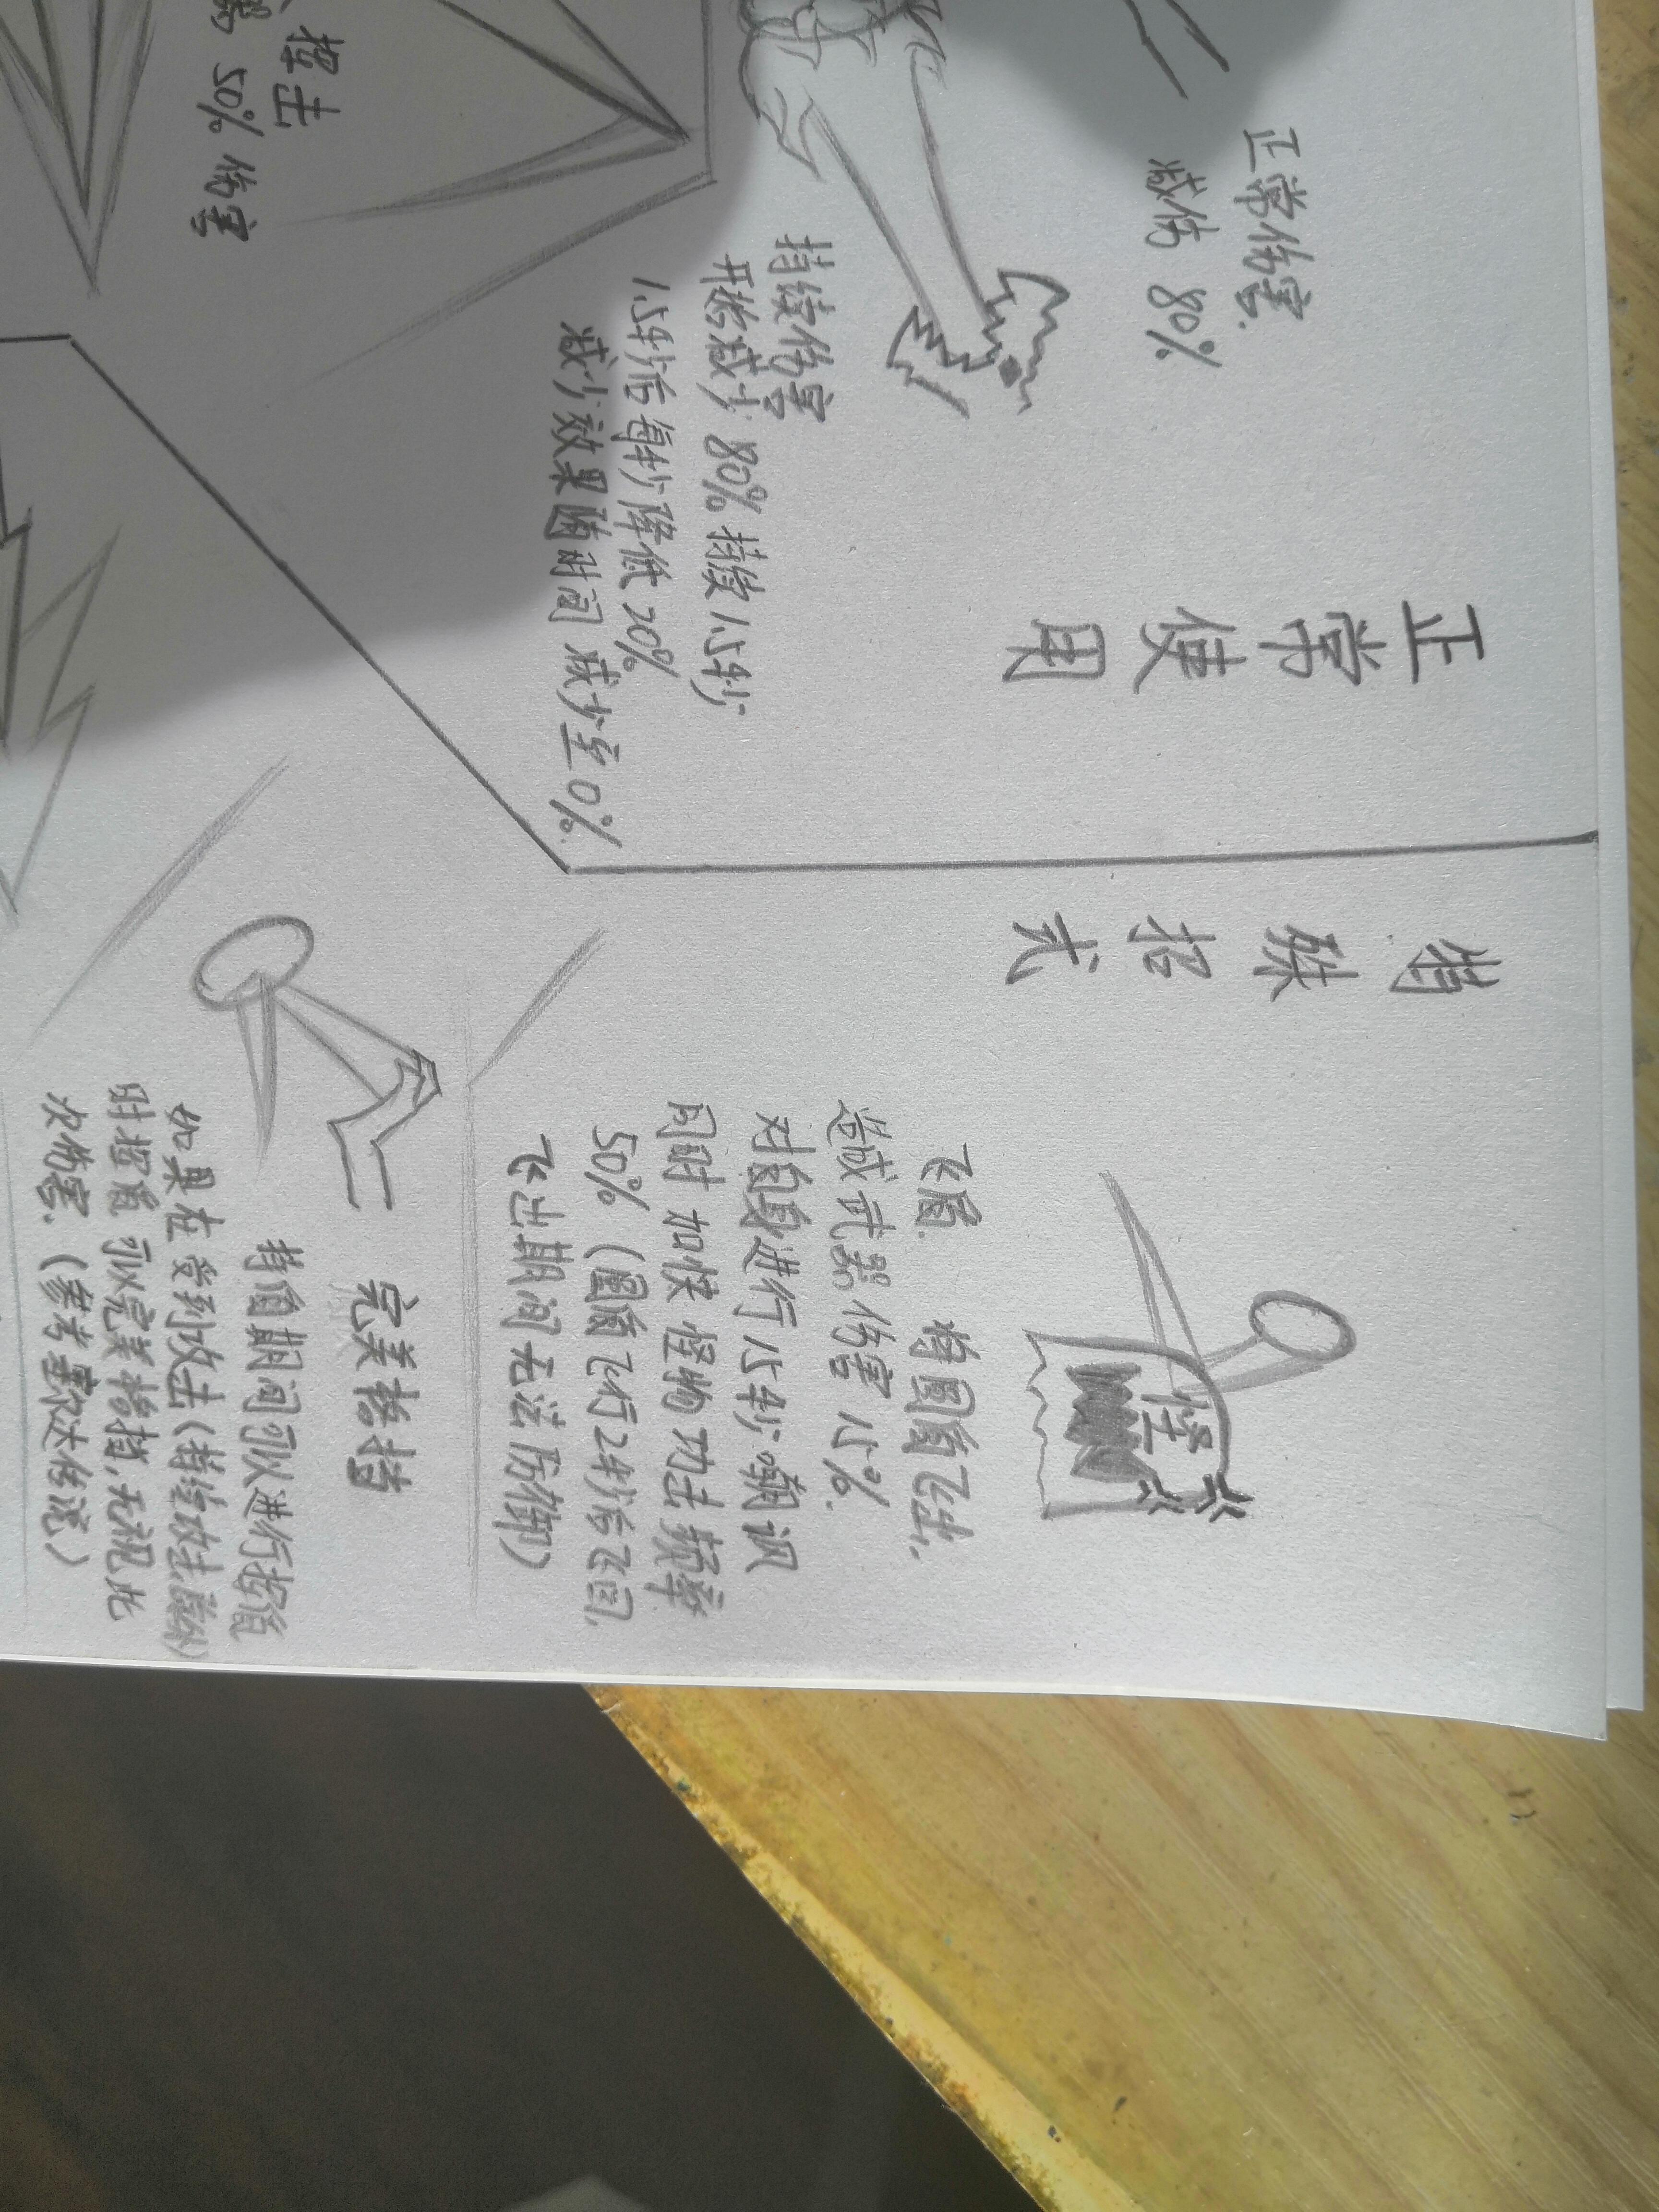 正常使用
正常伤害.
减伤 80%
持续伤害
开始减少 80% 持续1.5秒
1.5秒后每秒降低20%
减少效果随时间减少至0%
挥击
50% 伤害
特殊招式
怪
飞盾. 将圆盾飞出.
造成武器伤害15%.
对自身进行15秒嘲讽
同时加快怪物功击频率
50% (圆盾飞行2秒后飞回,
飞出期间无法防御)
完美格挡
持盾期间可以进行挥盾
如果在受到攻击(持续攻击除外)
时挥盾 可以完美格挡,无视此
次伤害. (参考塞尔达传说)